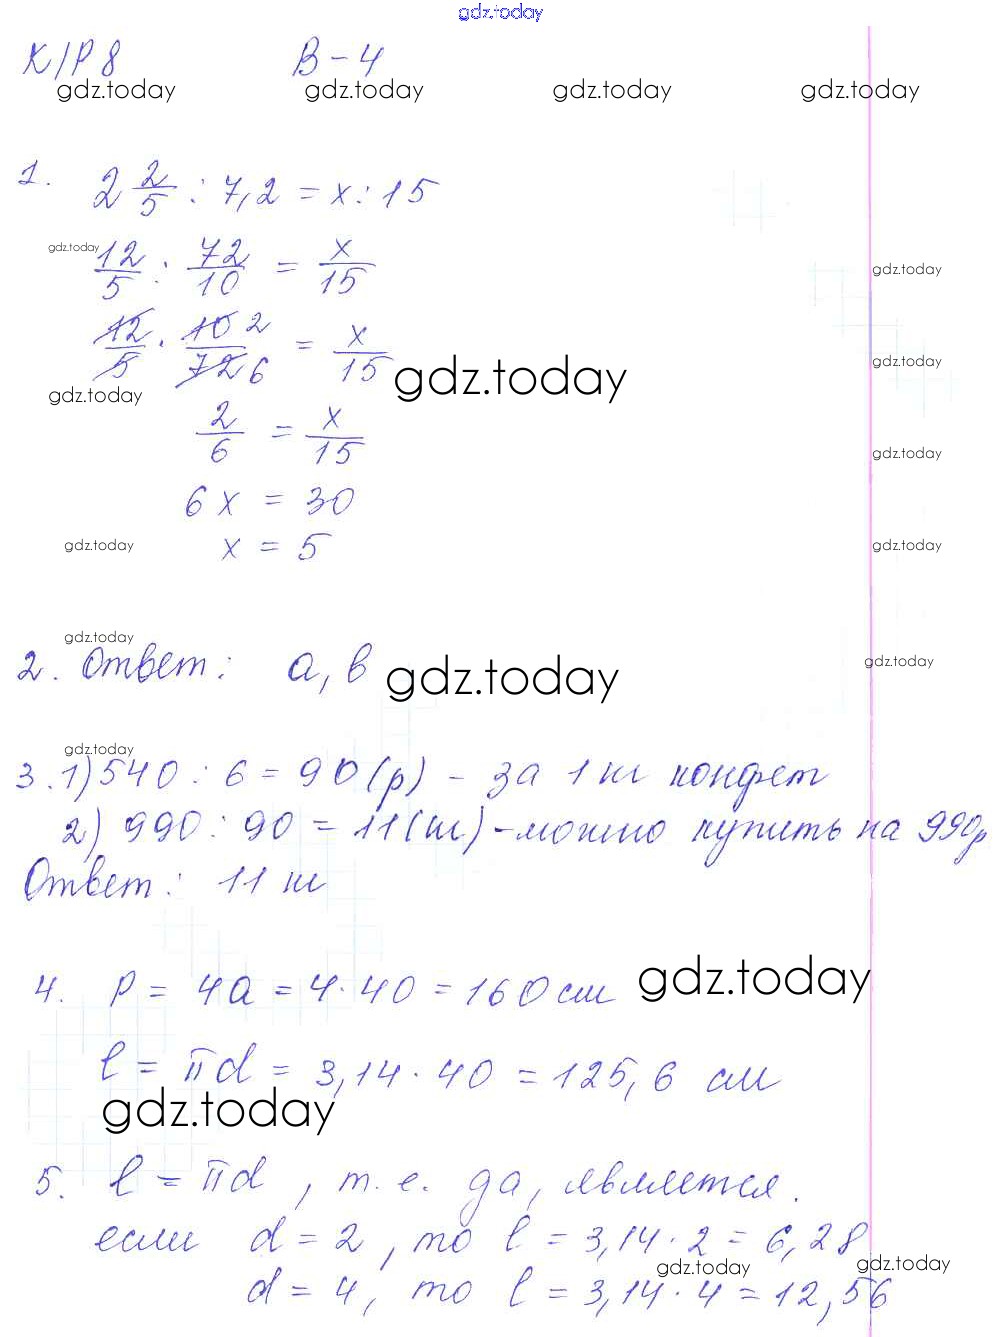 gdz.today
К/Р 8 В-4
gdz.today gdz.today gdz.today gdz.today
1. 2 2/5 : 7,2 = x : 15
gdz.today 12/5 : 72/10 = x/15
gdz.today
12/5 · 10 2/72 6 = x/15 gdz.today
gdz.today
gdz.today
2/6 = x/15
gdz.today
6x = 30
x = 5
gdz.today gdz.today
gdz.today
2. Ответ: а, в gdz.today gdz.today
gdz.today
3. 1) 540 : 6 = 90 (р) - за 1 кг конфет
2) 990 : 90 = 11 (кг) - можно купить на 990р
Ответ: 11 кг
4. P = 4a = 4 · 40 = 160 см gdz.today
l = πd = 3,14 · 40 = 125,6 см
gdz.today
5. l = πd, т.е. да, является.
если d = 2, то l = 3,14 · 2 = 6,28
gdz.today gdz.today
d = 4, то l = 3,14 · 4 = 12,56